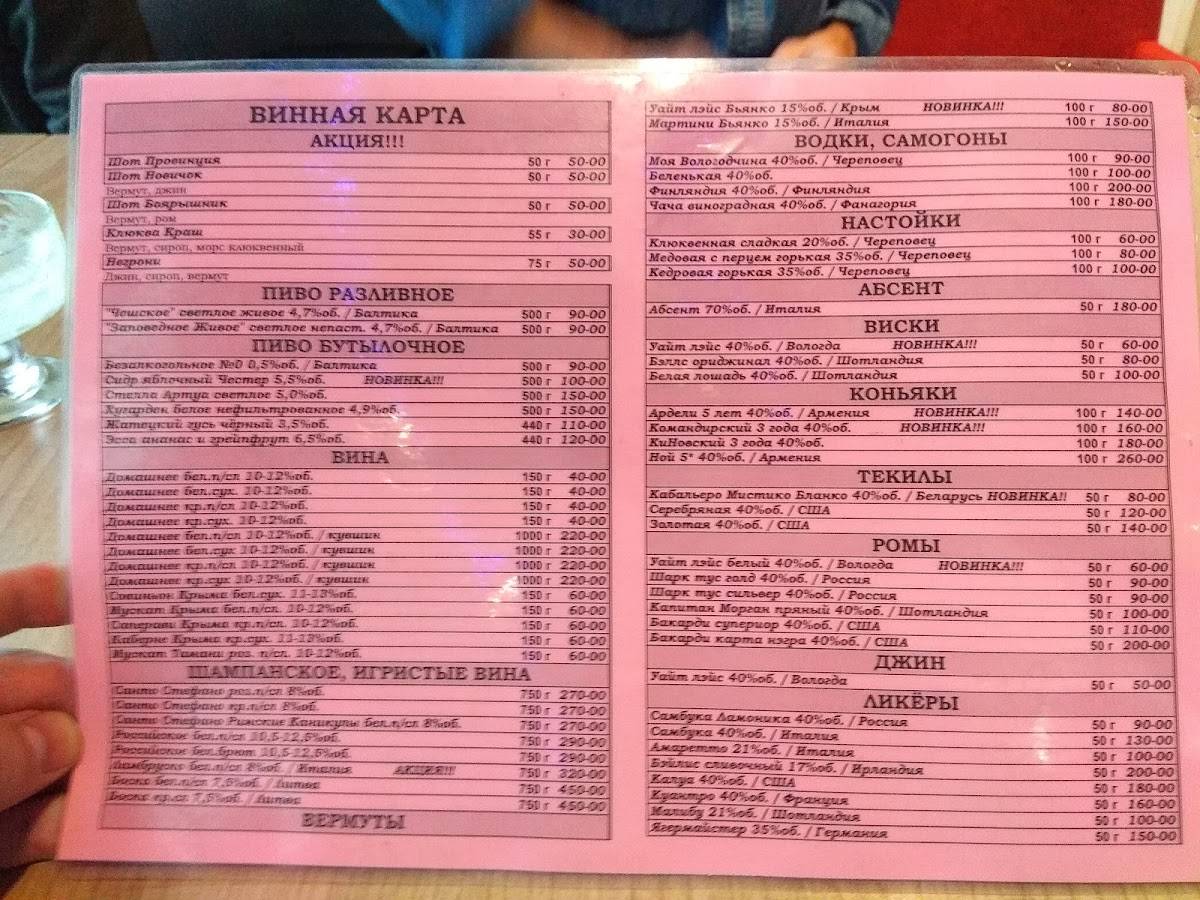 ВИННАЯ КАРТА
АКЦИЯ!!!
Шот Провинция 50 г 50-00
Шот Новичок 50 г 50-00
Вермут, джин
Шот Боярышник 50 г 50-00
Вермут, ром
Клюква Краш 55 г 30-00
Вермут, сироп, морс клюквенный
Негрони 75 г 50-00
Джин, сироп, вермут
ПИВО РАЗЛИВНОЕ
"Чешское" светлое живое 4,7%об. / Балтика 500 г 90-00
"Заповедное Живое" светлое непаст. 4,7%об. / Балтика 500 г 90-00
ПИВО БУТЫЛОЧНОЕ
Безалкогольное №0 0,5%об. / Балтика 500 г 90-00
Сидр яблочный Честер 5,5%об. НОВИНКА!!! 500 г 100-00
Стелла Артуа светлое 5,0%об. 500 г 150-00
Хугарден белое нефильтрованное 4,9%об. 500 г 150-00
Жатецкий гусь чёрный 3,5%об. 440 г 110-00
Эсса ананас и грейпфрут 6,5%об. 440 г 120-00
ВИНА
Домашнее бел.п/сл 10-12%об. 150 г 40-00
Домашнее бел.сух. 10-12%об. 150 г 40-00
Домашнее кр.п/сл 10-12%об. 150 г 40-00
Домашнее кр.сух. 10-12%об. 150 г 40-00
Домашнее бел.п/сл 10-12%об. / кувшин 1000 г 220-00
Домашнее бел.сух 10-12%об. / кувшин 1000 г 220-00
Домашнее кр.п/сл 10-12%об. / кувшин 1000 г 220-00
Домашнее кр.сух 10-12%об. / кувшин 1000 г 220-00
Совиньон Крыма бел.сух. 11-13%об. 150 г 60-00
Мускат Крыма бел.п/сл. 10-12%об. 150 г 60-00
Саперави Крыма кр.п/сл. 10-12%об. 150 г 60-00
Каберне Крыма кр.сух. 11-13%об. 150 г 60-00
Мускат Тамани роз. п/сл. 10-12%об. 150 г 60-00
ШАМПАНСКОЕ, ИГРИСТЫЕ ВИНА
Санто Стефано роз.п/сл 8%об. 750 г 270-00
Санто Стефано кр.п/сл 8%об. 750 г 270-00
Санто Стефано Римские Каникулы бел.п/сл 8%об. 750 г 270-00
Российское бел.п/сл 10,5-12,5%об. 750 г 290-00
Российское бел.брют 10,5-12,5%об. 750 г 290-00
Ламбруско бел.п/сл 8%об. / Италия АКЦИЯ!!! 750 г 320-00
Боска бел.п/сл 7,5%об. / Литва 750 г 450-00
Боска кр.сл 7,5%об. / Литва 750 г 450-00
ВЕРМУТЫ
Уайт лэйс Бьянко 15%об. / Крым НОВИНКА!!! 100 г 80-00
Мартини Бьянко 15%об. / Италия 100 г 150-00
ВОДКИ, САМОГОНЫ
Моя Вологодчина 40%об. / Череповец 100 г 90-00
Беленькая 40%об. 100 г 100-00
Финляндия 40%об. / Финляндия 100 г 200-00
Чача виноградная 40%об. / Фанагория 100 г 180-00
НАСТОЙКИ
Клюквенная сладкая 20%об. / Череповец 100 г 60-00
Медовая с перцем горькая 35%об. / Череповец 100 г 80-00
Кедровая горькая 35%об. / Череповец 100 г 100-00
АБСЕНТ
Абсент 70%об. / Италия 50 г 180-00
ВИСКИ
Уайт лэйс 40%об. / Вологда НОВИНКА!!! 50 г 60-00
Бэллс ориджинал 40%об. / Шотландия 50 г 80-00
Белая лошадь 40%об. / Шотландия 50 г 100-00
КОНЬЯКИ
Ардели 5 лет 40%об. / Армения НОВИНКА!!! 100 г 140-00
Командирский 3 года 40%об. НОВИНКА!!! 100 г 160-00
КиНовский 3 года 40%об. 100 г 180-00
Ной 5* 40%об. / Армения 100 г 260-00
ТЕКИЛЫ
Кабальеро Мистико Бланко 40%об. / Беларусь НОВИНКА!! 50 г 80-00
Серебряная 40%об. / США 50 г 120-00
Золотая 40%об. / США 50 г 140-00
РОМЫ
Уайт лэйс белый 40%об. / Вологда НОВИНКА!!! 50 г 60-00
Шарк тус голд 40%об. / Россия 50 г 90-00
Шарк тус сильвер 40%об. / Россия 50 г 90-00
Капитан Морган пряный 40%об. / Шотландия 50 г 100-00
Бакарди супериор 40%об. / США 50 г 110-00
Бакарди карта нэгра 40%об. / США 50 г 200-00
ДЖИН
Уайт лэйс 40%об. / Вологда 50 г 50-00
ЛИКЁРЫ
Самбука Ламоника 40%об. / Россия 50 г 90-00
Самбука 40%об. / Италия 50 г 130-00
Амаретто 21%об. / Италия 50 г 100-00
Бэйлис сливочный 17%об. / Ирландия 50 г 200-00
Калуа 40%об. / США 50 г 180-00
Куантро 40%об. / Франция 50 г 160-00
Малибу 21%об. / Шотландия 50 г 100-00
Ягермайстер 35%об. / Германия 50 г 150-00